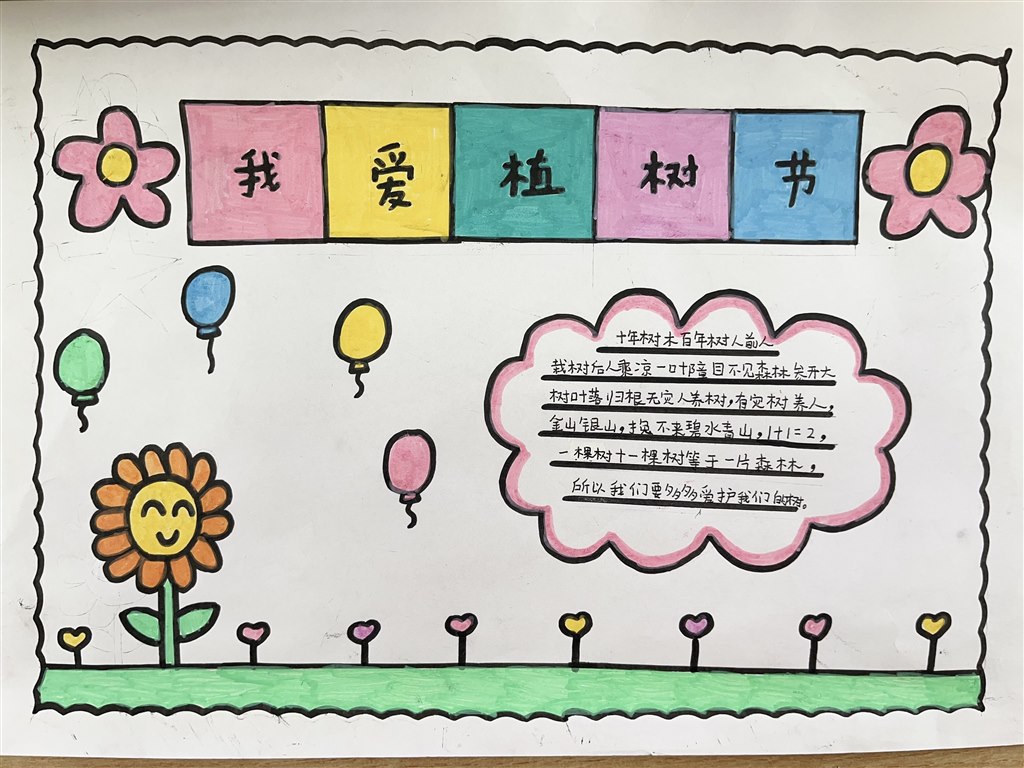 我爱植树节
十年树木百年树人前人
栽树后人乘凉一叶障目不见森林参开大
树叶落归根无灾人养树,有灾树养人,
金山银山,换不来碧水青山,1+1=2,
一棵树十一棵树等于一片森林,
所以我们要多多爱护我们的树。